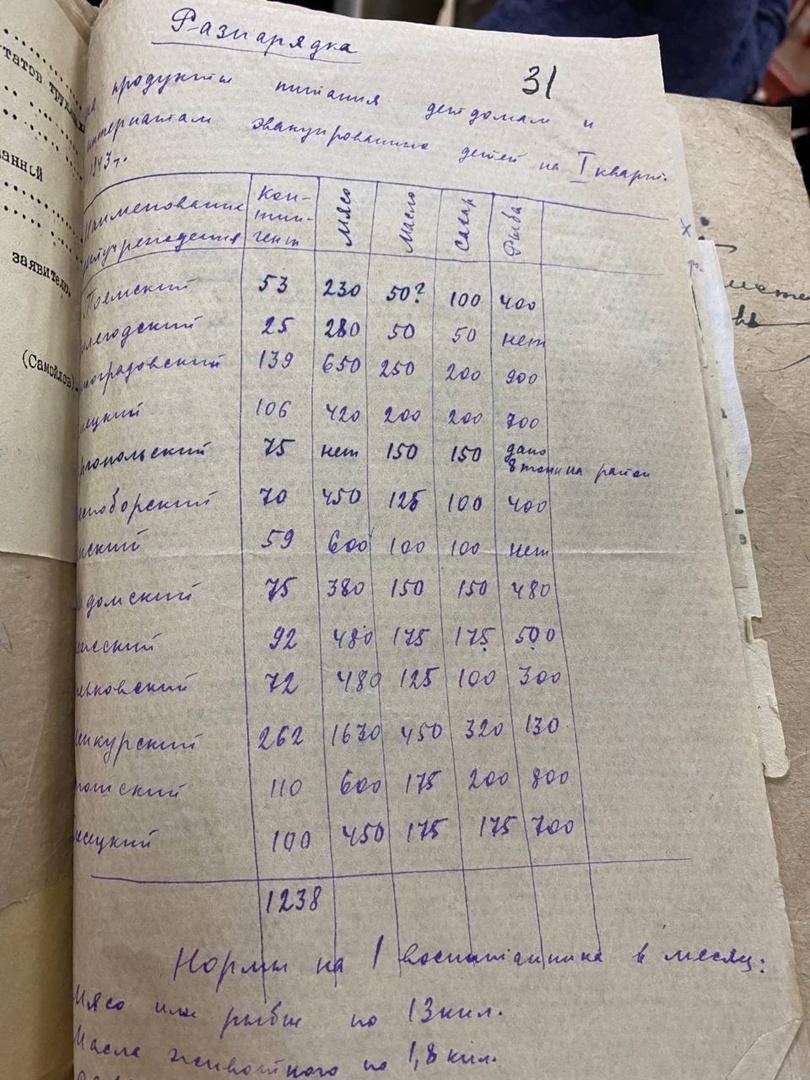 Разнарядка
31
на продукты питания детдомам и
интернатам эвакуированных детей на I кварт.
1943 г.
Наименование Кон-тин-гент Мясо Масло Сахар Рыба
Тоемский 53 230 50? 100 400
легодский 25 280 50 50 нет
ноградовский 139 650 250 200 900
ецкий 106 420 200 200 700
гопольский 75 нет 150 150 дано 8 тонн на район
юборский 70 450 125 100 400
нский 59 600 100 100 нет
домский 75 380 150 150 480
ский 92 480 175 175 500
ьковский 72 480 125 100 300
енкурский 262 1630 450 320 130
ский 110 600 175 200 800
сецкий 100 450 175 175 700
1238
Нормы на 1 воспитанника в месяц:
Мясо или рыбы по 13 кил.
Масла животного по 1,8 кил.
татов труд
анной
заявителю
(Самойлов)